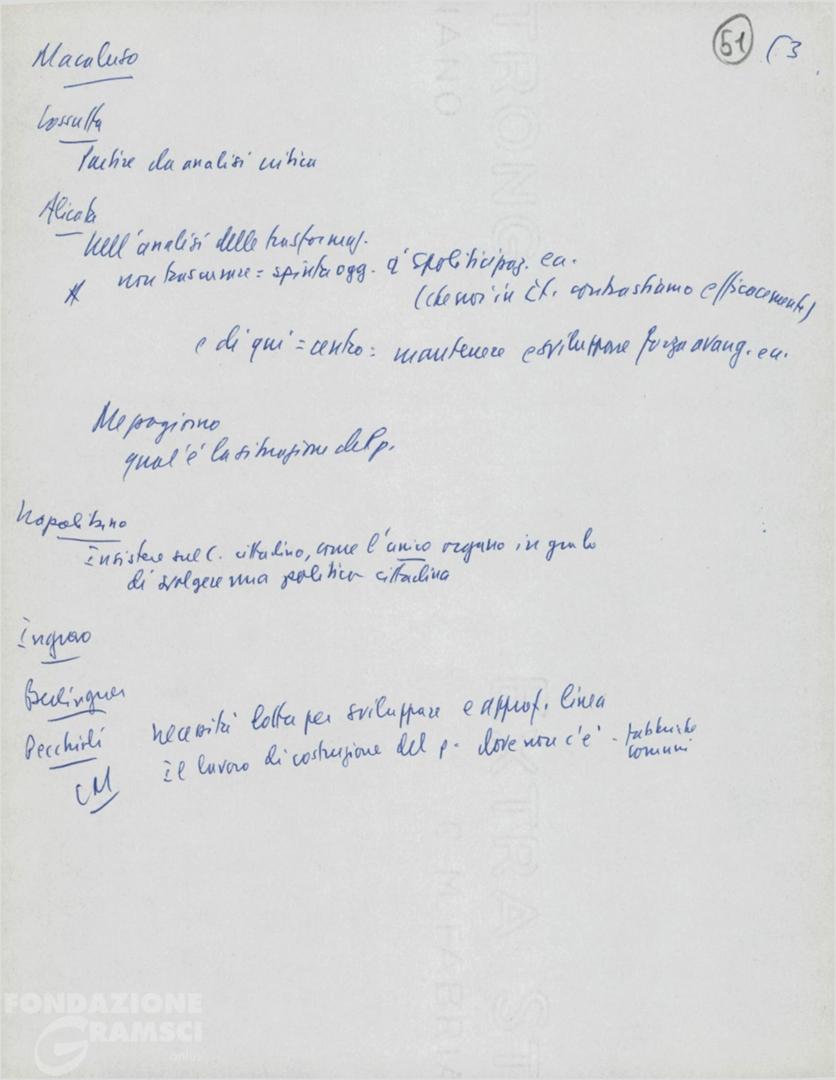 51 (3
Macaluso
Cossutta
Partire da analisi critica
Alicata
Nell'analisi delle trasformaz.
non trascurare = spinta ogg. a' spoliticizaz. ecc.
(che noi in It. contrastiamo efficacemente)
e di qui = centro = mantenere e sviluppare forza avang. ecc.
Mezzogiorno
qual'è la situazione del p.
Napolitano
Insistere sul C. cittadino, come l'unico organo in grado
di svolgere una politica cittadina
Ingrao
Berlinguer
Pecchioli necessità lotta per sviluppare e approf. linea
CM il lavoro di costruzione del p. dove non c'è - fabbriche
comuni
FONDAZIONE
GRAMSCI
online